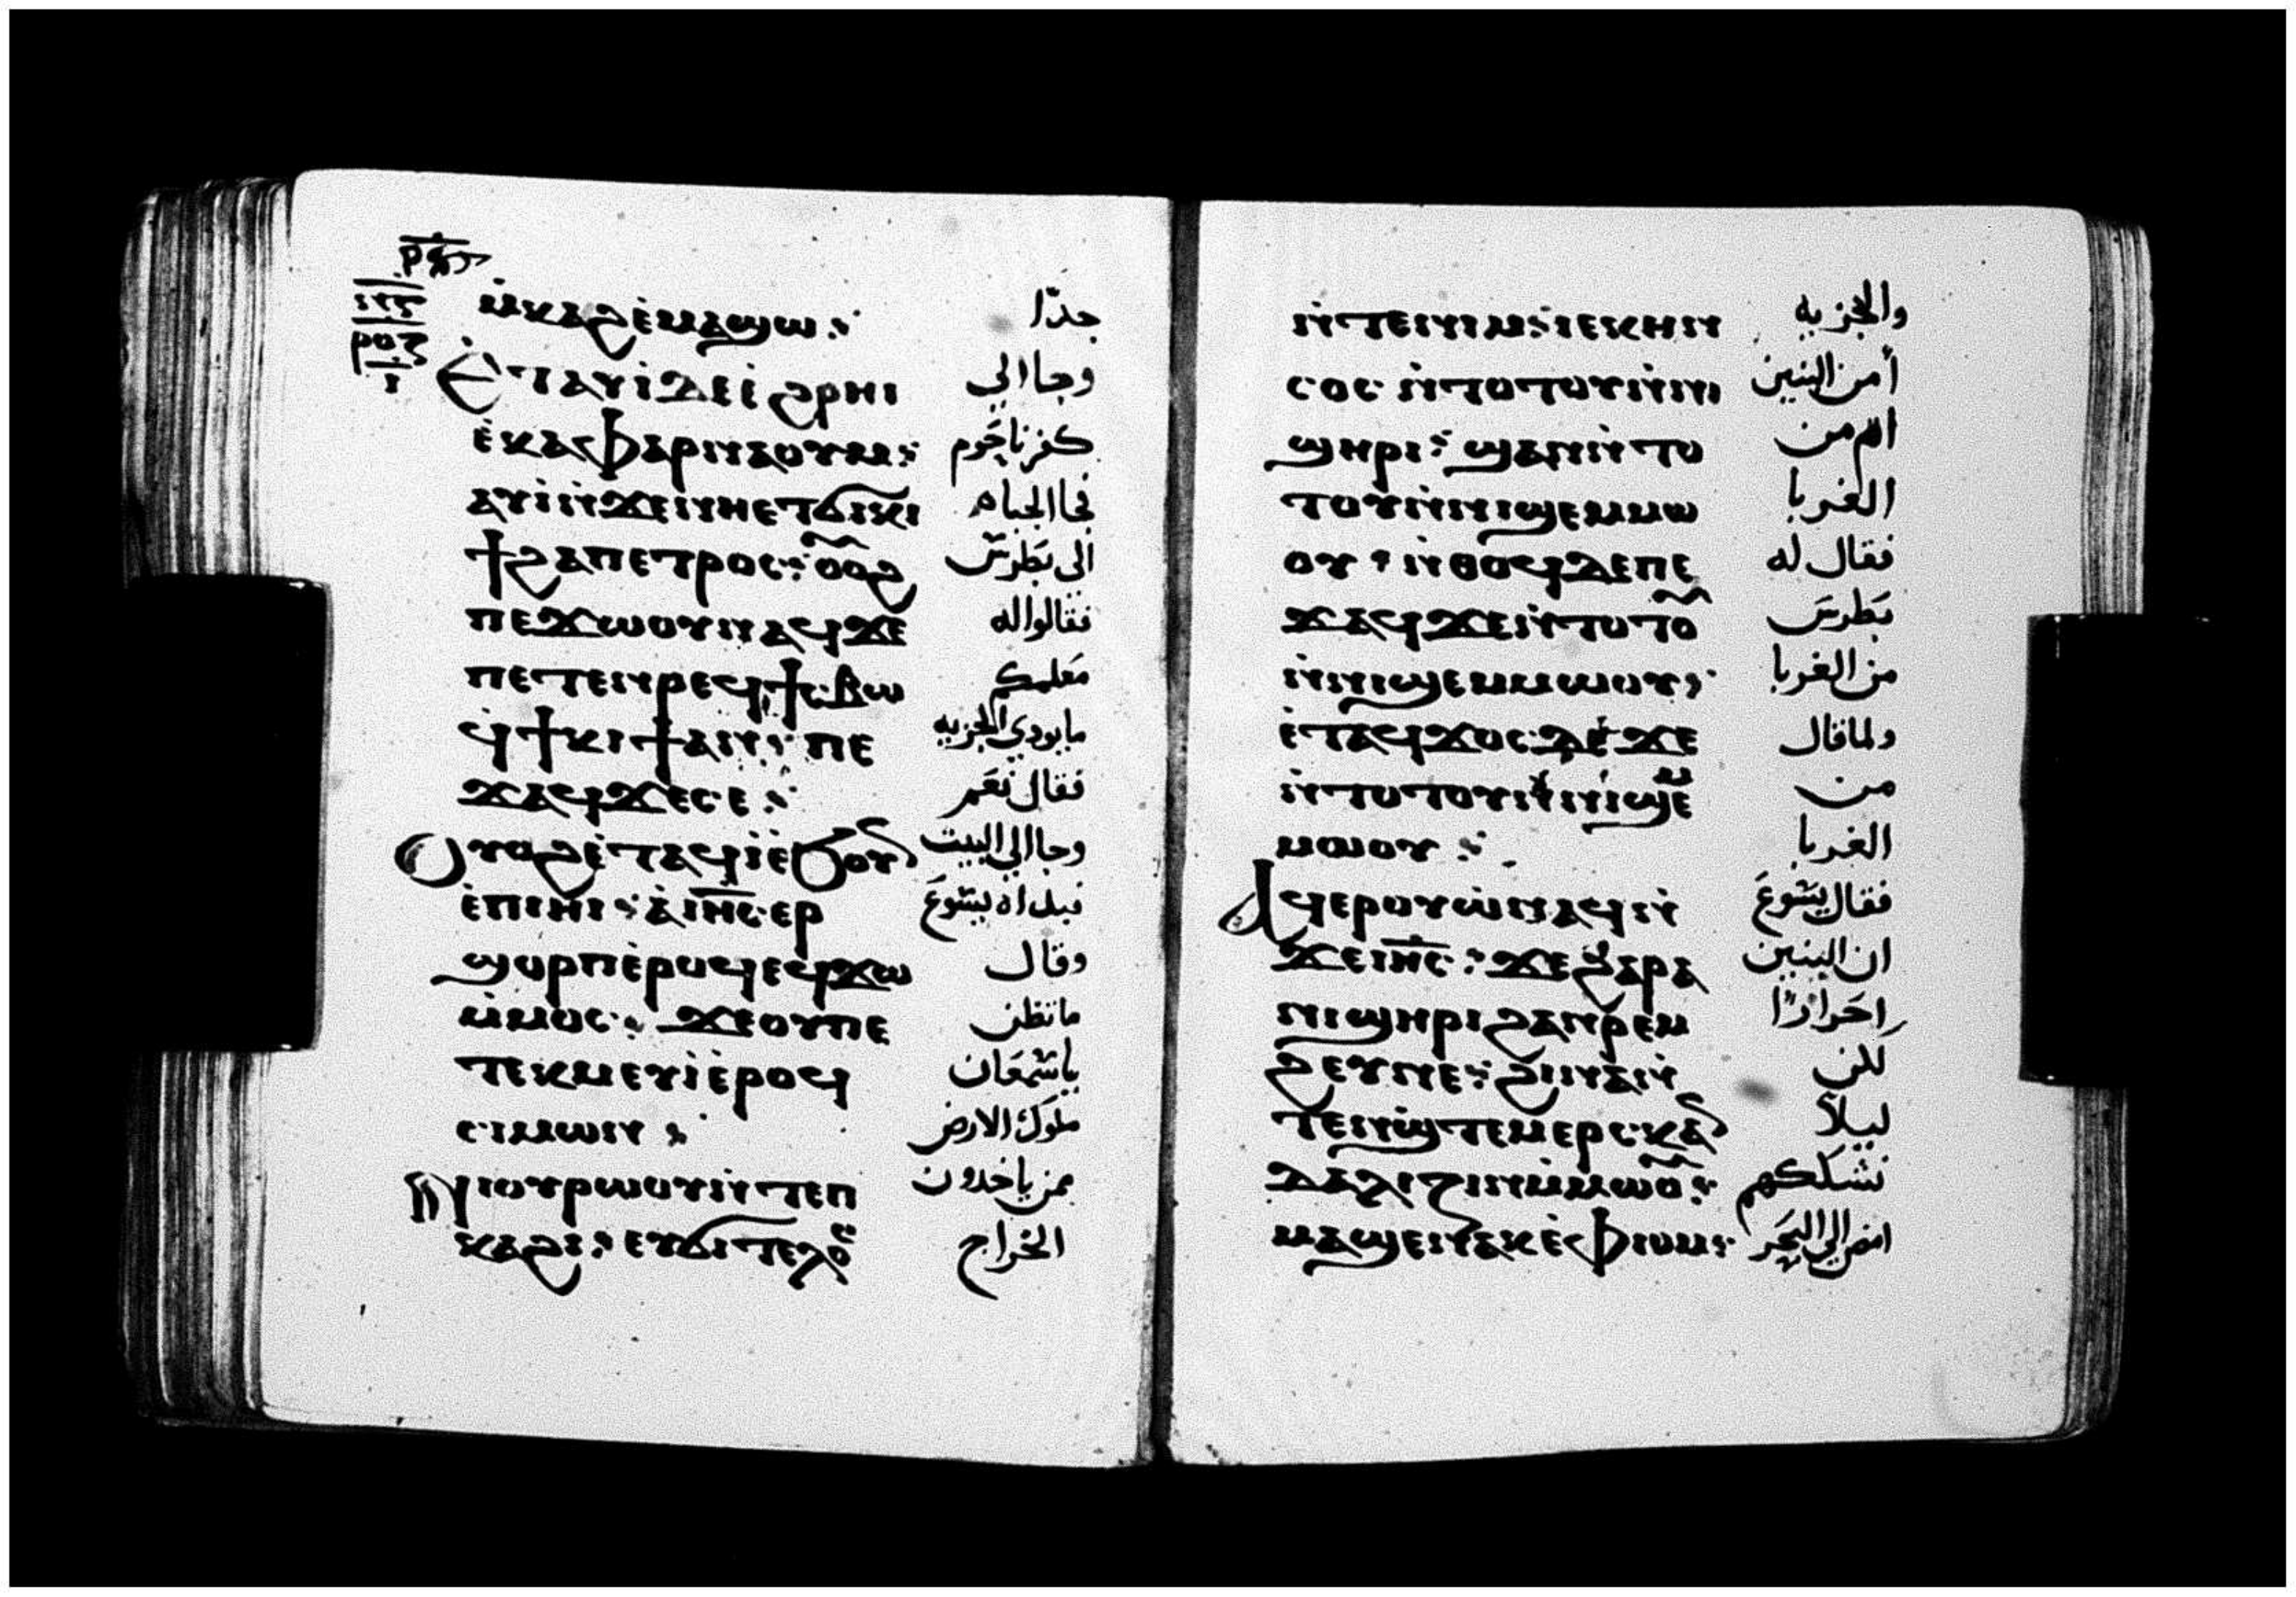 ⲣⲟⲍ
ⲓ
ⲙ̀ⲕⲁϩⲉ̀ⲙⲁϣⲱ : جدّا
Ⲉ̀ⲧⲁⲩⲓ̀ⲇⲉⲉ̀ϧⲣⲏⲓ وجا الي
ⲉ̀ⲕⲁⲫⲁⲣⲛⲁⲟⲩⲙ : كفرناحَوم
ⲁⲩⲓ̀ⲛ̀ϫⲉⲛⲏⲉⲧϭⲓⲕⲓ فجا الجباه
ϯϩⲁⲡⲉⲧⲣⲟⲥ : ⲟⲩⲟϩ الى بَطرسَ
ⲡⲉϫⲱⲟⲩⲛⲁϥϫⲉ فقالوا له
ⲡⲉⲧⲉⲛⲣⲉϥϯⲥⲃⲱ مَعلمكم
ϥϯⲕⲓϯⲁⲛ : ⲡⲉ ما يودي الجزيه
ϫⲁϥϫⲉⲥⲉ : فقال نعَم
Ⲟⲩⲟϩⲉ̀ⲧⲁϥⲓ̀ⲉ̀ϧⲟⲩⲛ وجا الي البيت
ⲉ̀ⲡⲓⲏⲓ : ⲁ̀ⲓⲏ̅ⲥ̅ⲉⲣ فبداه يسَوعَ
ϣⲟⲣⲡⲉ̀ⲣⲟϥⲉϥϫⲱ وقال
ⲙ̀ⲙⲟⲥ : ϫⲉⲟⲩⲡⲉ ما تظن
ⲧⲉⲕⲙⲉⲩⲓ̀ⲉ̀ⲣⲟϥ ياسَمعَان
ⲥⲓⲙⲱⲛ : ملوك الارض
Ⲛⲓⲟⲩⲣⲱⲟⲩⲛ̀ⲧⲉⲡ ممن ياخدون
ⲕⲁϩⲓ : ⲉⲩϭⲓⲧⲉⲗⲟⲥ الخراج
ⲛ̀ⲧⲉⲛⲓⲙ : ⲓⲉⲕⲏⲛ والجزيه
ⲥⲟⲥ ⲛ̀ⲧⲟⲧⲟⲩⲛ̀ⲛⲓ أمن البنين
ϣⲏⲣⲓ : ϣⲁⲛⲛ̀ⲧⲟ ام من
ⲧⲟⲩⲛ̀ⲛⲓϣⲉⲙⲙⲱ الغربا
ⲟⲩ : ⲛ̀ⲑⲟϥⲇⲉⲡⲉ فقال له
ϫⲁϥϫⲉⲛ̀ⲧⲟⲧⲟⲩ بَطرسَ
ⲛ̀ⲛⲓϣⲉⲙⲙⲱⲟⲩ : من الغربا
ⲉ̀ⲧⲁϥϫⲟⲥⲇⲉϫⲉ ولما قال
ⲛ̀ⲧⲟⲧⲟⲩⲛ̀ⲛⲓϣⲉⲙ من
ⲙⲱⲟⲩ : الغربا
Ⲁϥⲉⲣⲟⲩⲱ̀ⲛⲁϥⲛ̀ فقال يسَوعَ
ϫⲉⲓⲏ̅ⲥ̅ : ϫⲉϩⲁⲣⲁ ان البنين
ⲛⲓϣⲏⲣⲓϩⲁⲛⲣⲉⲙ احَرارًا
ϩⲉⲩⲛⲉ : ϩⲓⲛⲁⲛ̀ لكن
ⲧⲉⲛϣ̀ⲧⲉⲙⲉⲣⲥⲕⲁⲛ ليلاً
ⲇⲁⲗⲓⲍⲓⲛⲙ̀ⲙⲱⲟⲩ : نشككهم
ⲙⲁϣⲉⲛⲁⲕⲉ̀ⲫⲓⲟⲙ : امض الي البحَر